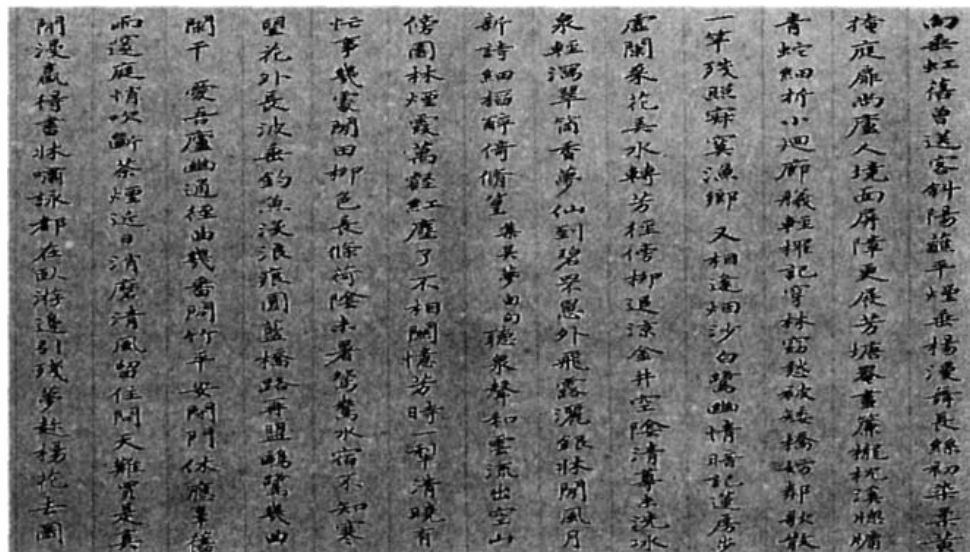 向垂虹舊曾送客斜陽蘸平煙垂楊漫舞長絲初染柔黃
掩庭扉尚廬人境面屏障更展芳塘翠畫簾櫳枕溪
青蛇細折小迴廊艤輕櫂記穿林窈越破矮橋妨鄰歌散
一竿殘照寂寞漁鄉 又相逢烟沙白鷺幽情暗記蓬房
虛閣乘花共水轉芳徑傍柳追涼金井空陰清尊未洗冰
泉輕瀉翠筒香夢仙到碧罘罳外飛露灑銀牀閒風月
新詩細稻醉倚脩篁 集吳夢窗句 聽泉聲和雲流出空山
傍園林煙霞萬壑紅塵了不相關憶芳時一犁清曉有
忙事幾處閒田柳色長條荷陰未暑鴛鴦水宿不知寒
盟花外長波垂釣魚沒浪痕圓藍橋路再盟鷗鷺幾曲
闌干 愛吾廬幽通徑曲幾番問竹平安閉閒門休應
雨邊庭悄吹斷茶煙近日消磨清風留住閒天難買是真
閒漫贏得書牀嘯詠都在臥游邊引殘夢趁楊花去